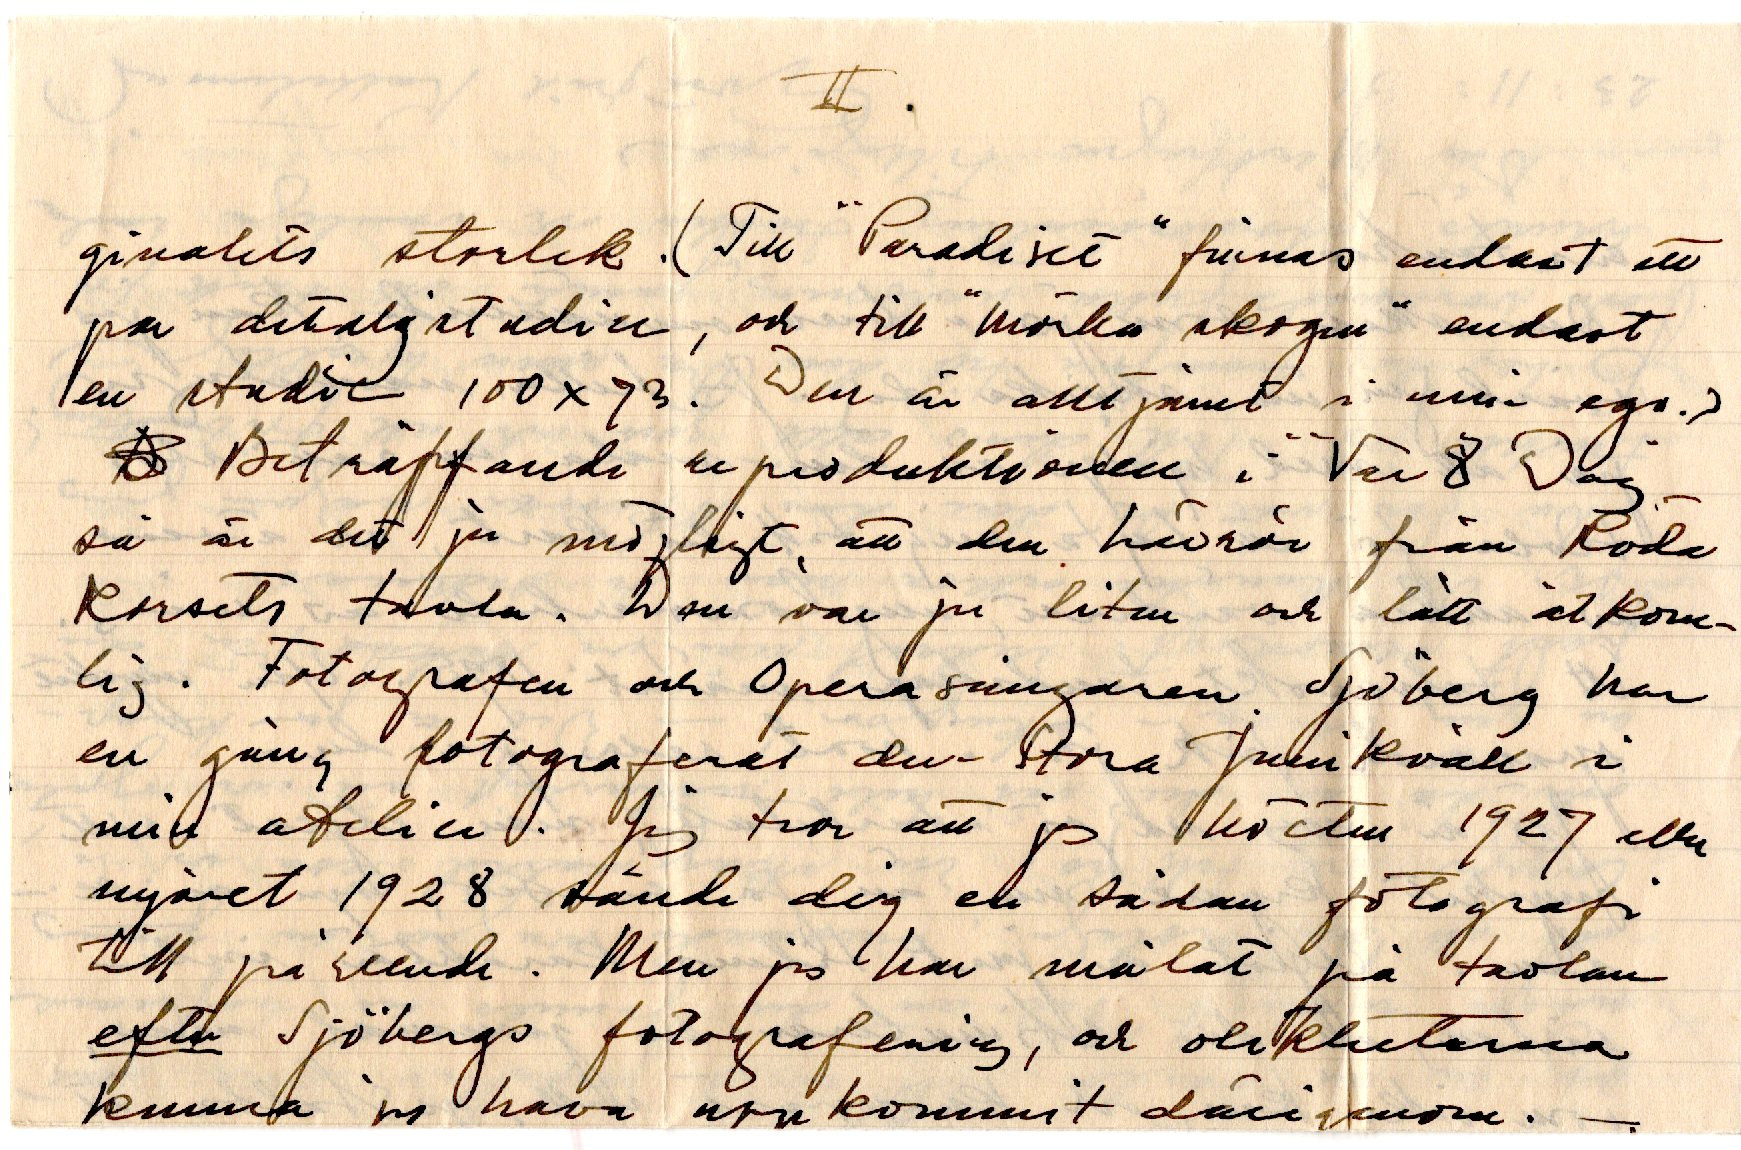 II.
ginalets storlek. (Till "Paradiset" finnas endast ett
par detaljstudier, och till "Mörka skogen" endast
en studie 100 x 73. Den är alltjämt i min ägo.)
Beträffande reproduktionen i "Var 8 Dag
så är det ju möjligt, att den härrör från Röda
Korsets tavla. Den var ju liten och lätt åtkom-
lig. Fotografen och Operasångaren Sjöberg har
en gång fotograferat den stora Junikväll i
min atelier. Jag tror att jag hösten 1927 eller
nyåret 1928 sände dig en sådan fotografi
till påseende. Men jag har målat på tavlan
efter Sjöbergs fotografering, och olikheterna
kunna ju hava uppkommit därigenom. —